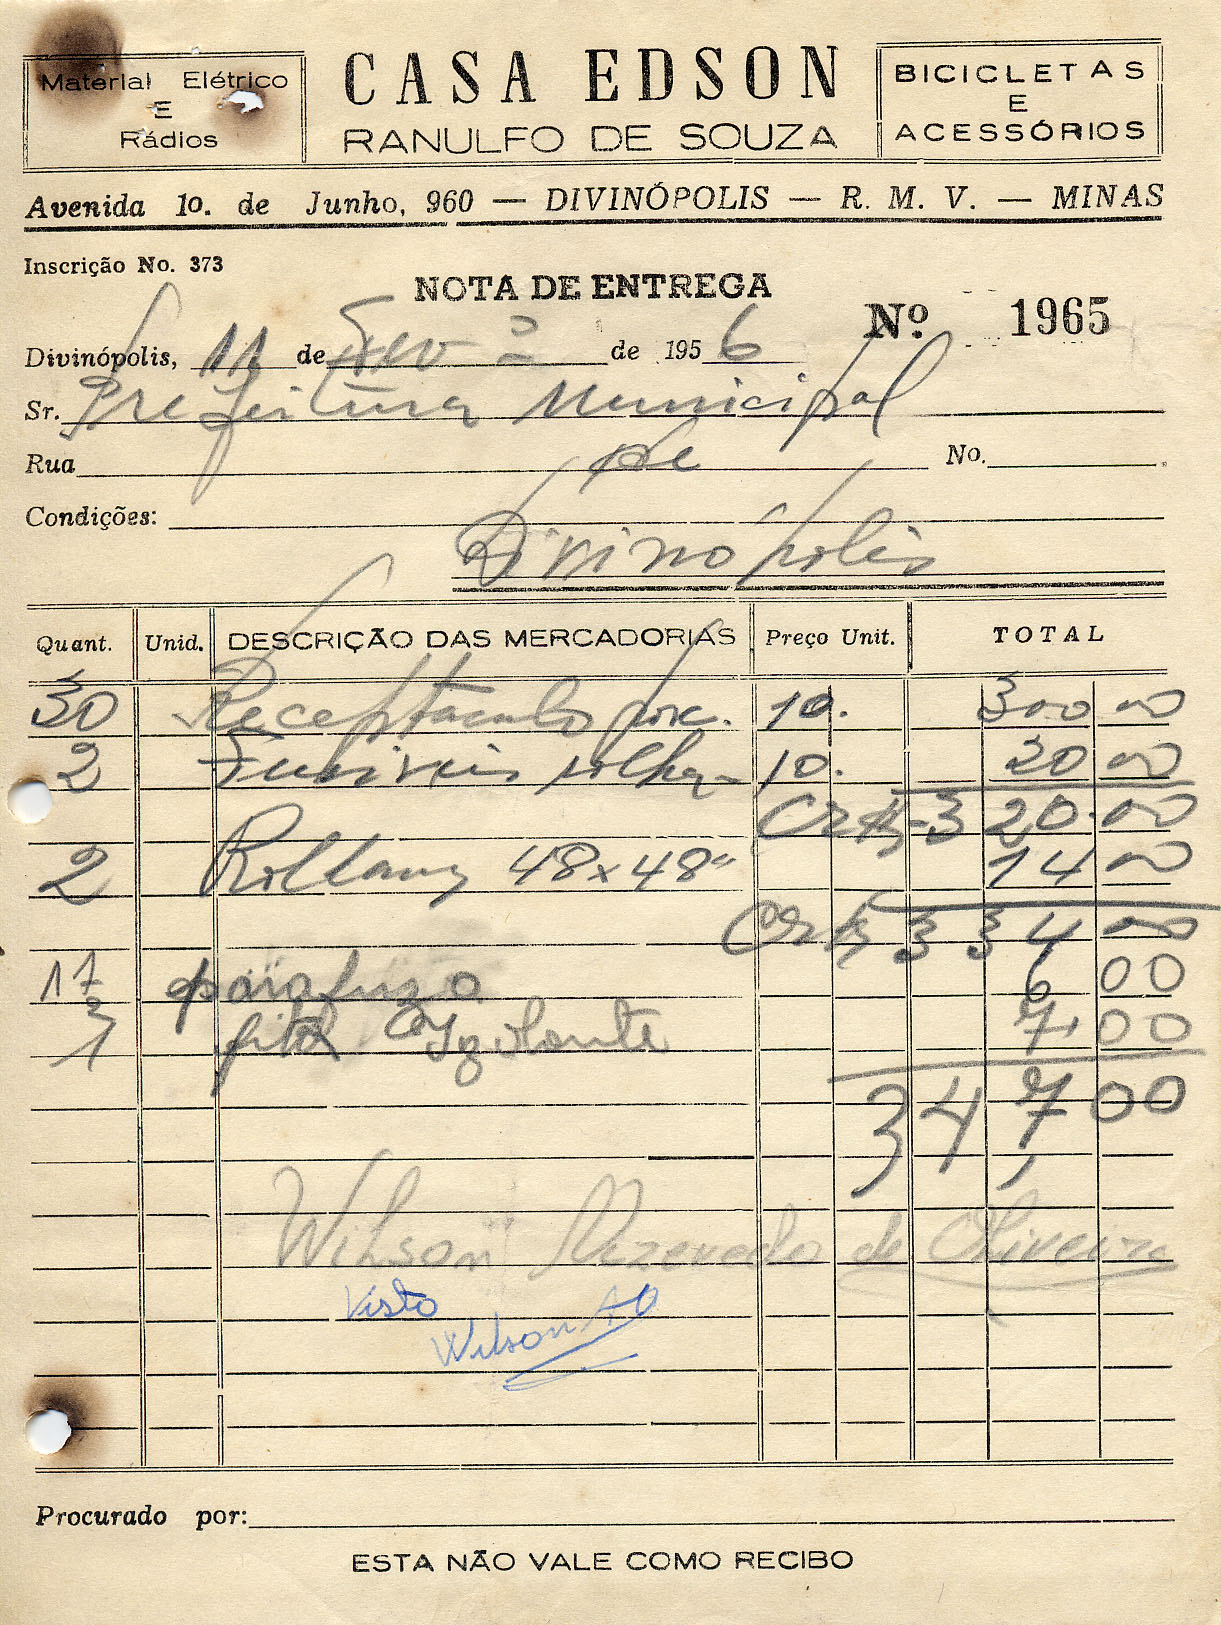 Material Elétrico
E
Rádios
CASA EDSON
RANULFO DE SOUZA
BICICLETAS
E
ACESSÓRIOS
Avenida 1o. de Junho, 960 — DIVINÓPOLIS — R. M. V. — MINAS
Inscrição No. 373
NOTA DE ENTREGA
Nº 1965
Divinópolis, 11 de Fevº de 1956
Sr. Prefeitura Municipal
Rua de No.
Condições:
Divinópolis
Quant. Unid. DESCRIÇÃO DAS MERCADORIAS Preço Unit. TOTAL
30 Receptaculo porc. 10. 300 00
2 Fusiveis rolha 10. 20 00
Cr$ 320.00
2 48x48" 14 00
Cr$ 334 00
17 parafuzo 6 00
1 fita Izolante 7,00
347,00
Wilson Azevedo de Oliveira
Visto
Wilson AO
Procurado por:
ESTA NÃO VALE COMO RECIBO